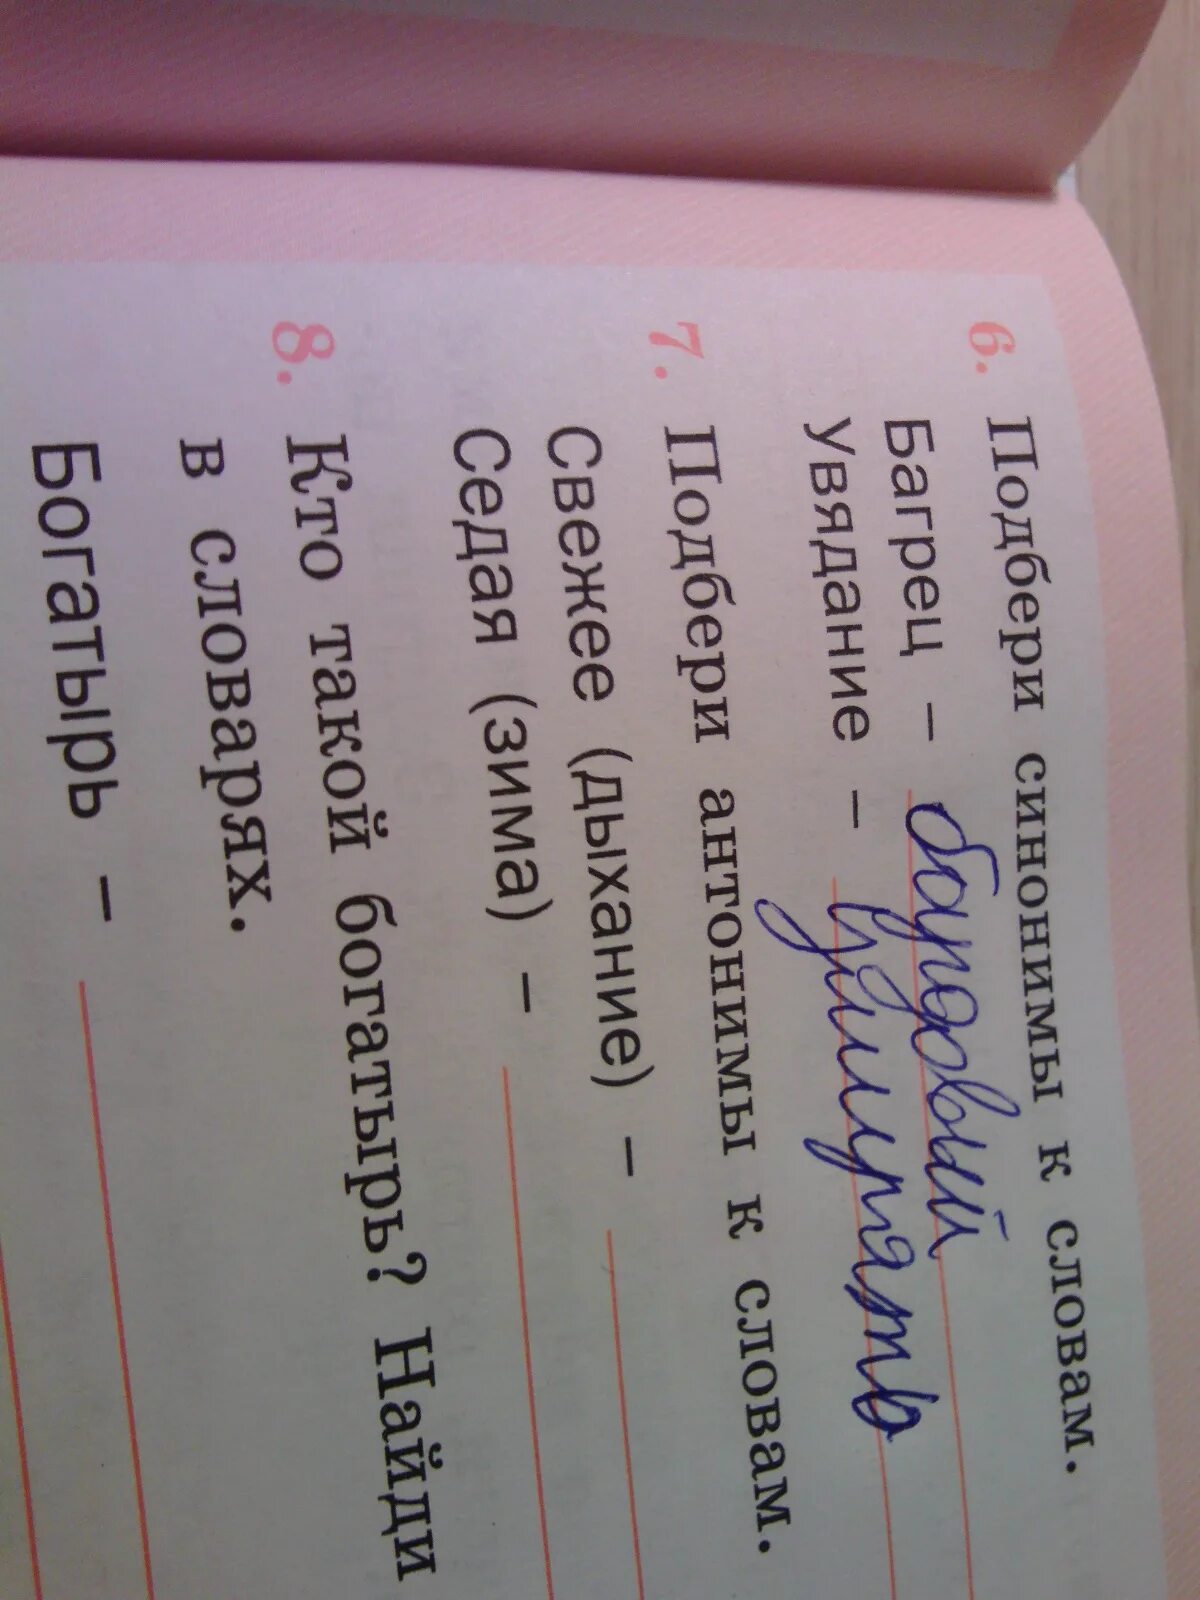 6. Подбери синонимы к словам.
Багрец – бардовый
Увядание – умирать
7. Подбери антонимы к словам.
Свежее (дыхание) –
Седая (зима) –
8. Кто такой богатырь? Найди
в словарях.
Богатырь –